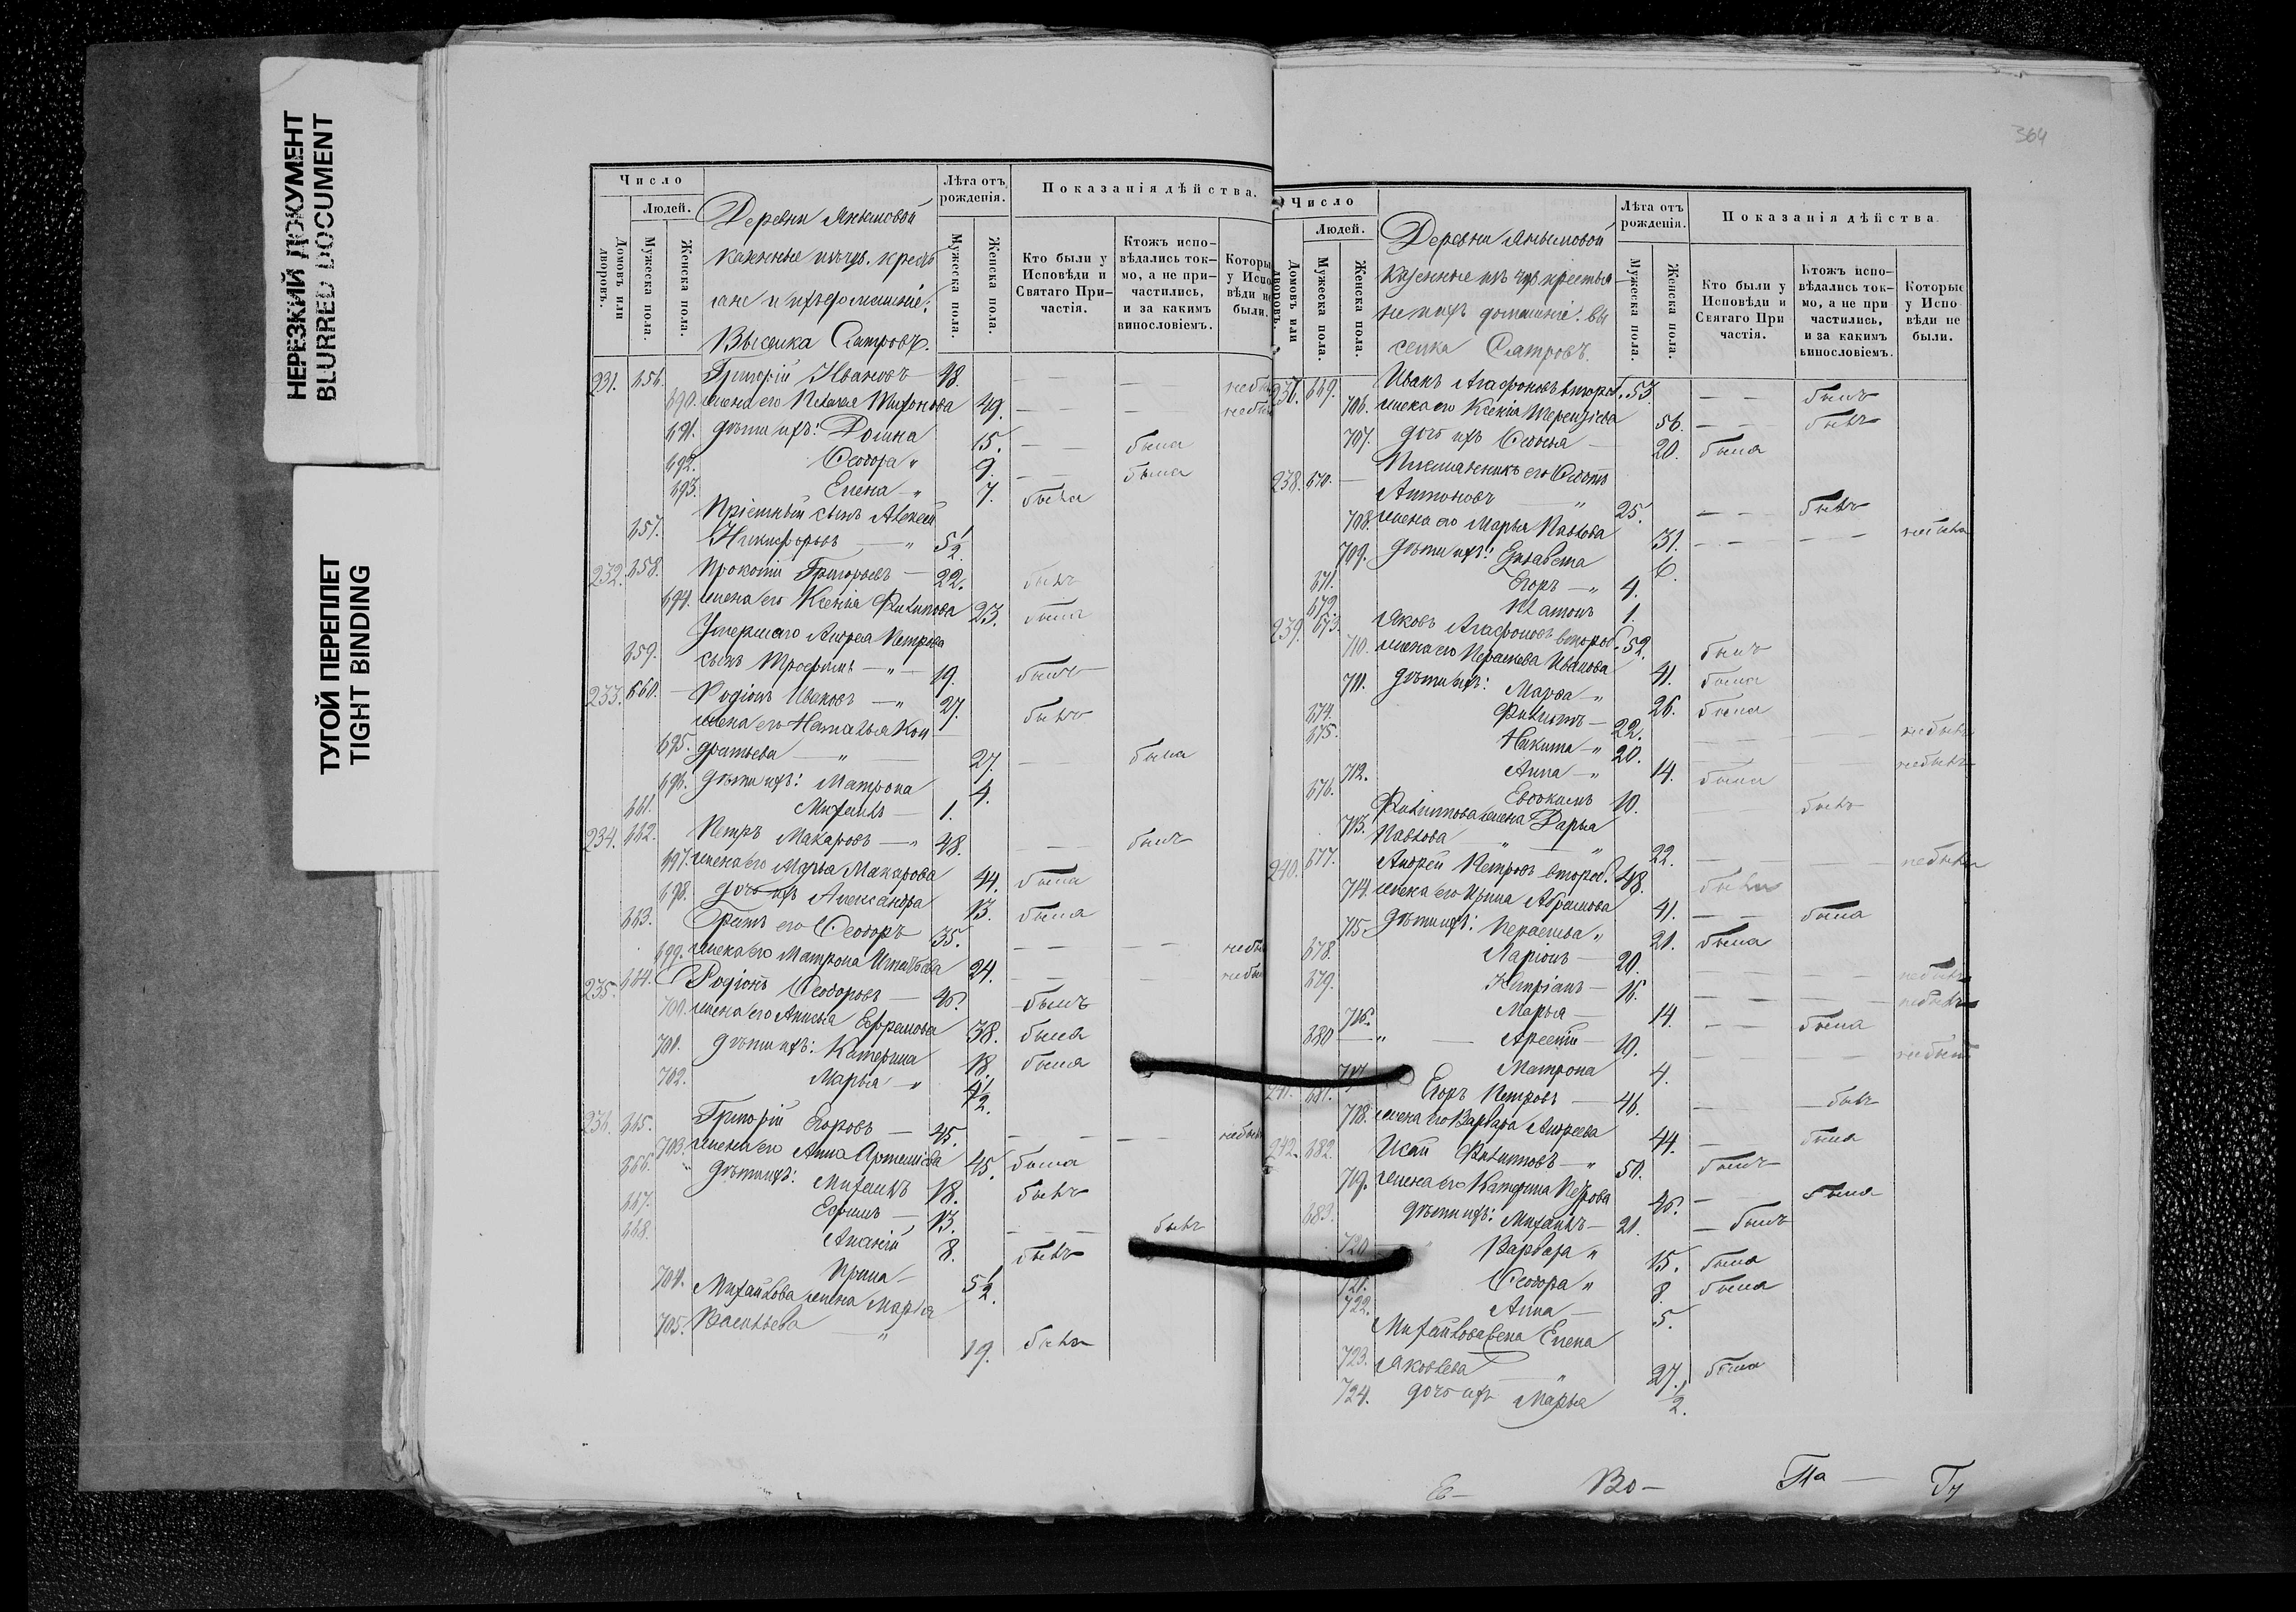 НЕРЕЗКИЙ ДОКУМЕНТ
BLURRED DOCUMENT
ТУГОЙ ПЕРЕПЛЕТ
TIGHT BINDING
Число
Людей.
Домовъ или дворовъ.
Мужеска пола.
Женска пола.
Деревни
крестьяне и ихъ домашніе:
Лѣта отъ рожденія.
Мужеска пола.
Женска пола.
Показанія дѣйства.
Кто были у Исповѣди и Святаго Причастія.
Ктожъ исповѣдались токмо, а не причастились, и за какимъ винословіемъ.
Которы у Испо вѣди не были.
231. 656. Григорій Ивановъ 48. — — небы
690. жена его Пелагея 49. — — небы
691. дѣти ихъ: Домна 15. — была
692. Ѳеодора " 9. — была
693. Елена — " 7. была
Пріемный сынъ Алексей
657. Никифоровъ — " 5½
232. 658. Прокопій Григорьевъ — 22. былъ
694. жена его Ксенія Филипова 23. была
Умершаго Андрея Петрова
659. сынъ Трофимъ — " — 19. былъ
233. 660. — Родіонъ Ивановъ — " 27. былъ
жена его Наталья Кон
695. дратьева — " — 27. — была
696. дѣти ихъ: Матрона 4.
661. Михаилъ — 1.
234. 662. Петръ Макаровъ — " 48. — былъ
697. жена его Марья Макарова 44. была
698. дочь ихъ Александра 13. была
663. Братъ его Ѳеодоръ 35. — — небы
699. жена его Матрона Игнатьева 24. — — небы
235. 664. Родіонъ Ѳеодоровъ — 46. былъ
700. жена его Анисья Ефремова 38. была
701. дѣти ихъ: Катерина 18. была
702. Марья — " 4½.
236. 665. Григорій Егоровъ — 45. — — небылъ
703. жена его Анна Артемьева 45. была
666. " дѣти ихъ: Михаилъ 18. былъ
667. Ефимъ — 13. — былъ
668. Ананій 8. былъ
704. Ирина — 5½.
Михайлова жена Марья
705. Васильева — " 19. была
364
Число
Людей.
Домовъ или дворовъ.
Мужеска пола.
Женска пола.
Деревни
казенные крестья
не и ихъ домашніе. Вы
селка
Лѣта отъ рожденія.
Мужеска пола.
Женска пола.
Показанія дѣйства
Кто были у Исповѣди и Святаго При частія.
Ктожъ исповѣдались токмо, а не при частились, и за какимъ винословіемъ.
Которые у Испо вѣди не были.
237. 669. Иванъ Агафоновъ второй. 53. — былъ
706. жена его Ксенія Терентіева 56. — была
707. дочь ихъ Ѳеодосья — 20. была
Племянникъ его
238. 670. — Антоновъ — " 25. — былъ
708. жена его Марья Павлова 31. — — небыла
709. дѣти ихъ: Елизавета 6.
671. Егоръ — " 4.
672. Платонъ 1.
239. 673. Яковъ Агафоновъ второй. 52. былъ
710. жена его Параскева Иванова 41. была
711. дѣти ихъ: Марѳа — " 26. была
674. Филиппъ — 22. — — небылъ
675. Никита — " 20. — — небылъ
712. Анна — " 14. была
676. Евдокимъ 10. — былъ
Филиппова жена Дарья
713. Павлова — " — " 22. — — небыла
240. 677. Андрей Петровъ второй. 48. былъ
714. жена его Ирина Абрамова 41. — была
715. дѣти ихъ: Параскева " 21. была
678. Ларіонъ — 20. — — небылъ
679. Кипріанъ — 16. — — небылъ
716. Марья — 14. — была
680 — " — Арсеній — 10. — — небылъ
717. Матрона 4.
241. 681. Егоръ Петровъ — 46. — былъ
718. жена его Варвара Андреева 44. — была
242. 682. Исай Филипповъ — " 50. былъ
719. жена его Катерина Петрова 46. — была
683. дѣти ихъ: Михаилъ — 21. — былъ
720 " Варвара " 15. была
721. Ѳеодора " 8. была
722. Анна — 5.
Михайлова жена Елена
723. Яковлева — " 27. была
724. дочь ихъ Марья ½.
Во —
Па —